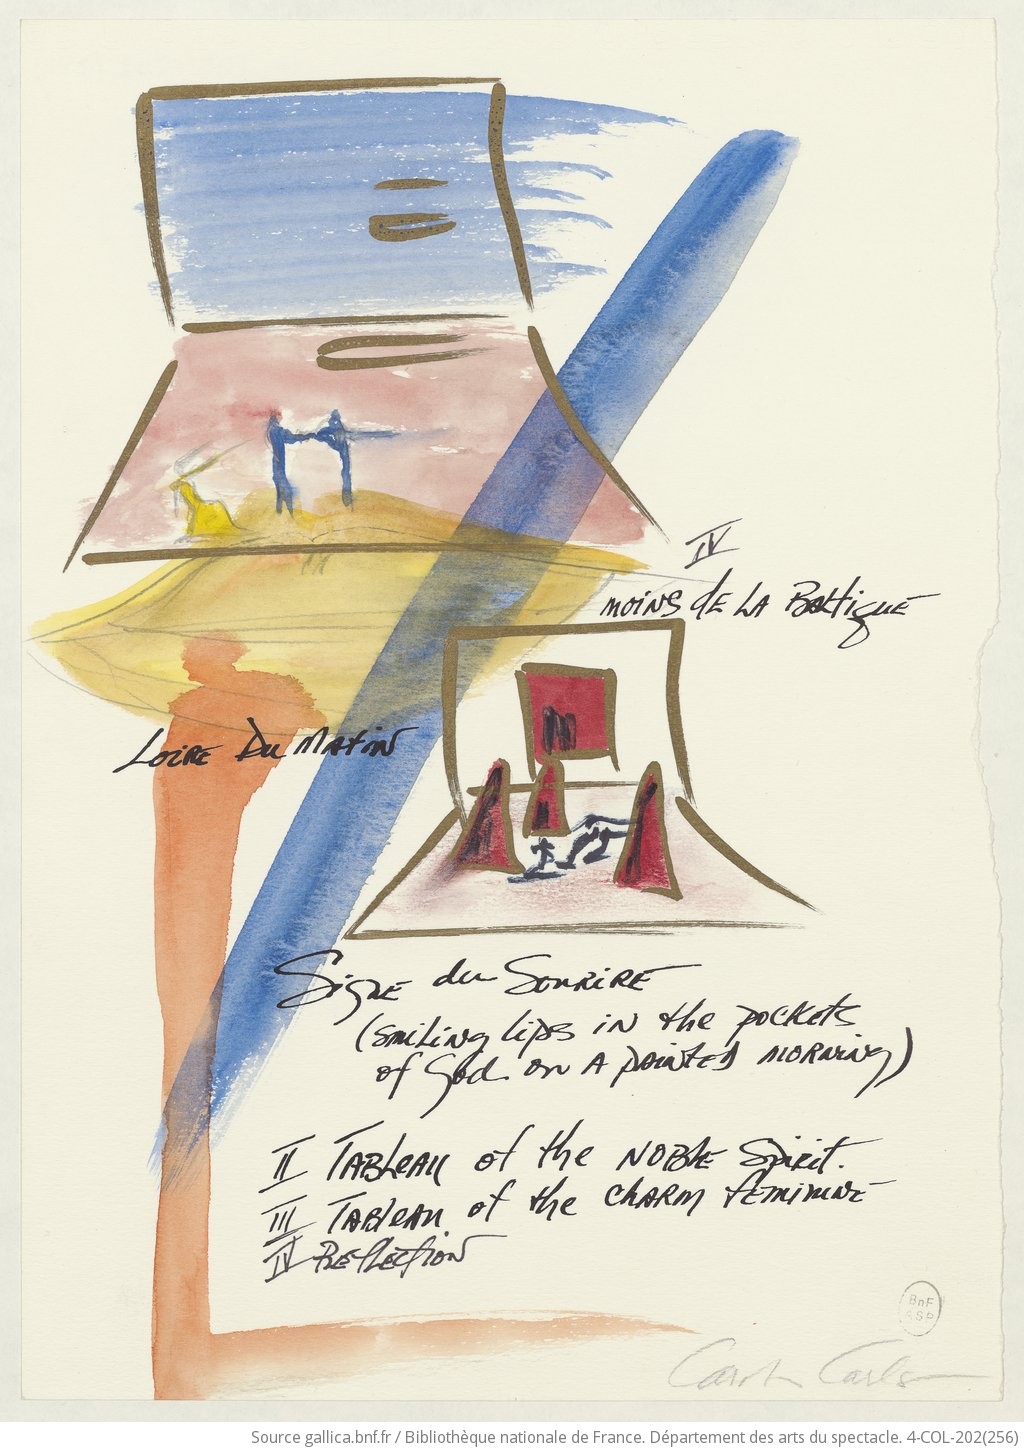 IV
moins de la Baltique
Loire du Matin
Signe du Sourire
(smiling lips in the pockets
of God on a painted morning)
II Tableau of the Noble Spirit.
III Tableau of the charm feminine
IV Reflection
BnF
ASP
Carolyn Carlson
Source gallica.bnf.fr / Bibliothèque nationale de France. Département des arts du spectacle. 4-COL-202(256)